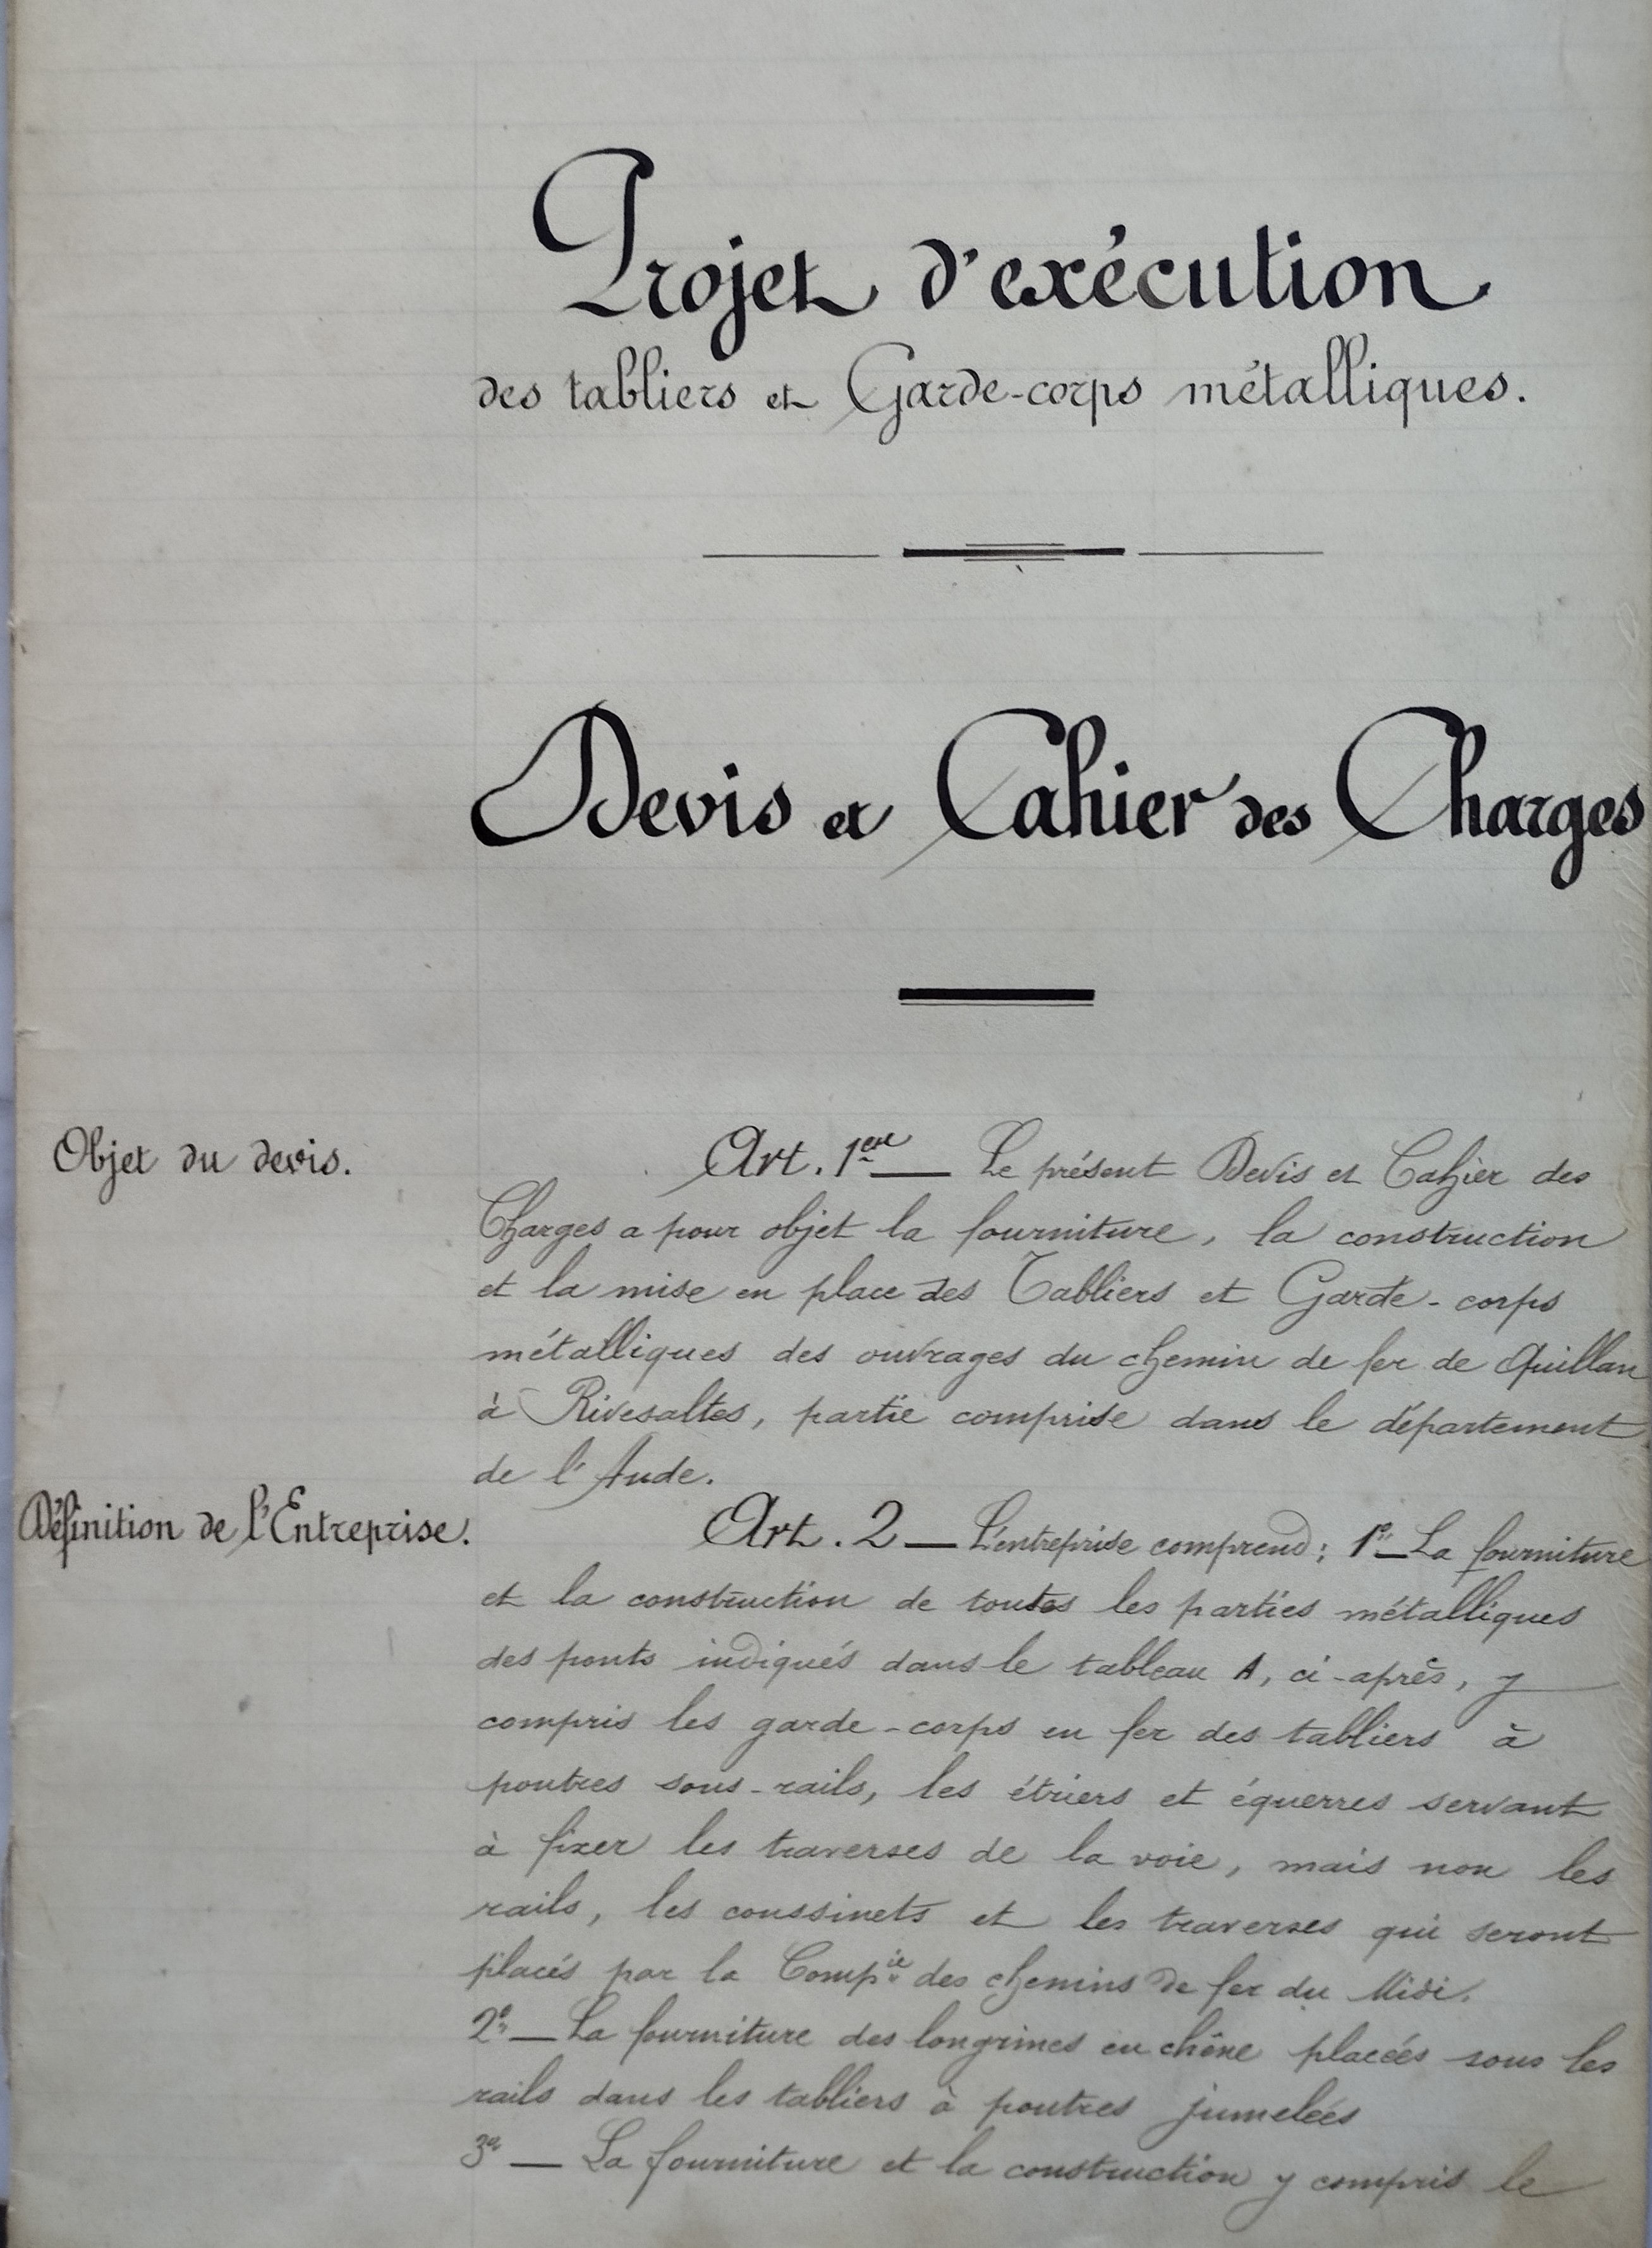 Projet d'exécution
des tabliers et Garde-corps métalliques.
Devis et Cahier des Charges
Objet du devis.
Art. 1er — Le présent Devis et Cahier des
Charges a pour objet la fourniture, la construction
et la mise en place des Tabliers et Garde-corps
métalliques des ouvrages du chemin de fer de Quillan
à Rivesaltes, partie comprise dans le département
de l'Aude.
Définition de l'Entreprise.
Art. 2 — L'entreprise comprend : 1° — La fourniture
et la construction de toutes les parties métalliques
des ponts indiqués dans le tableau A, ci-après, y
compris les garde-corps en fer des tabliers à
poutres sous-rails, les étriers et équerres servant
à fixer les traverses de la voie, mais non les
rails, les coussinets et les traverses qui seront
placés par la Compie des chemins de fer du Midi.
2° — La fourniture des longrines en chêne placées sous les
rails dans les tabliers à poutres jumelées
3° — La fourniture et la construction y compris le